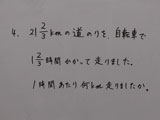 4. 21 2/3 kmの道のりを、自転車で
1 2/3 時間かかって走りました。
1時間あたり何km走りましたか。